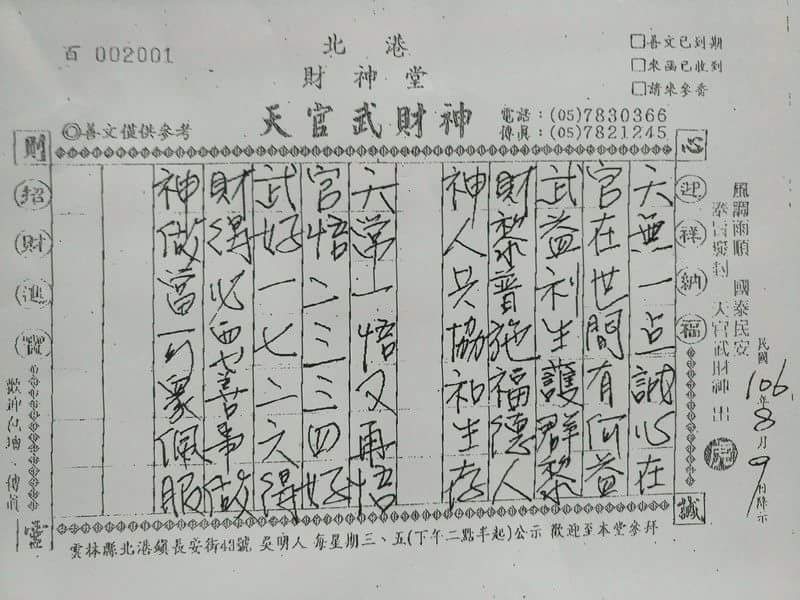 百 002001
北港
財神堂
天官武財神
◎善文僅供參考
電話：(05)7830366
傳真：(05)7821245
□善文已到期
□來函已收到
□請來參香
心誠
則靈
迎祥納福
招財進寶
風調雨順 國泰民安
天官武財神 出
民國106年8月9
天無一点誠心在
官在世間有何益
武益利生護群黎
財黎普施福德人
神人共協和生存
天掌上悟又再悟
官悟二三三四好
武好一七二六得
財得必要善事做
神做當可眾佩服
歡迎
傳真
雲林縣北港鎮長安街43號 吳明人 每星期三、五(下午二點半起)公示 歡迎至本堂參拜